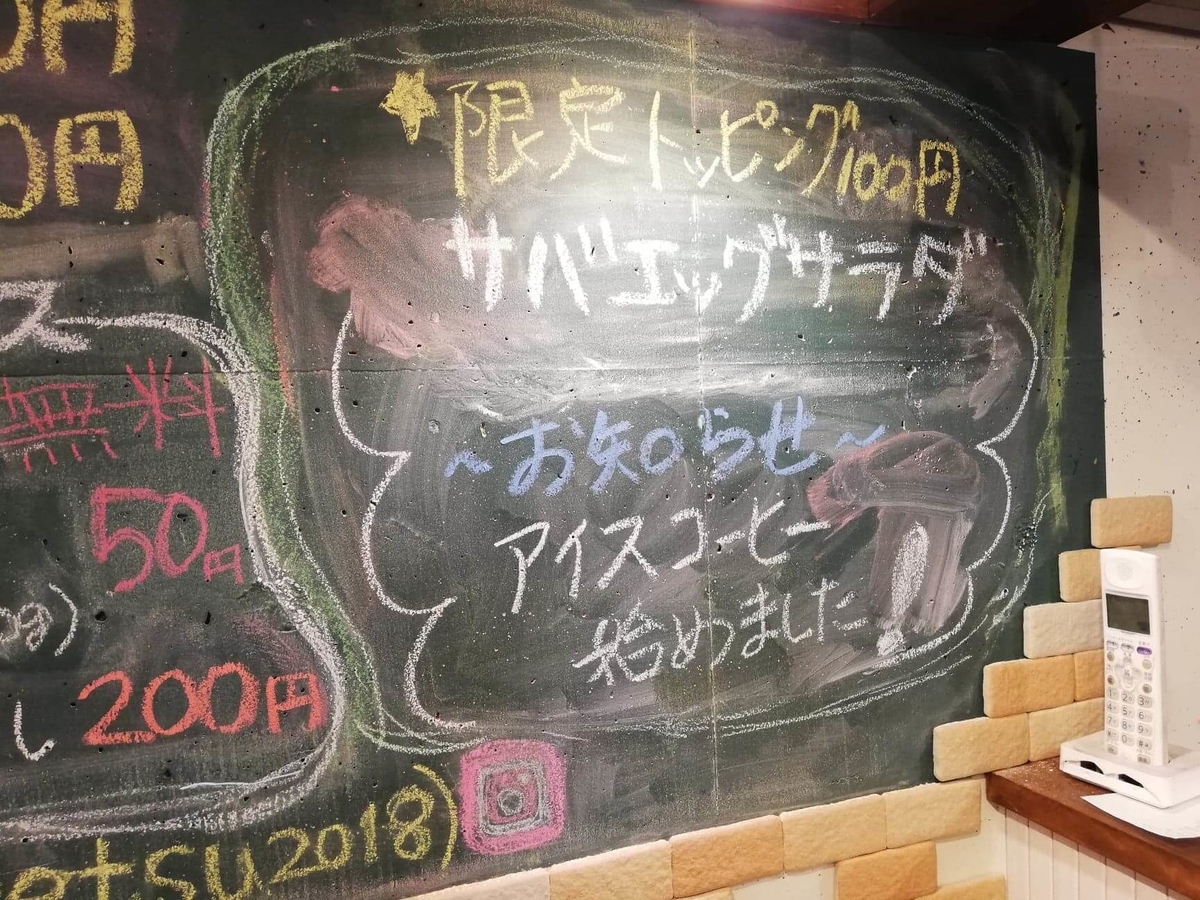 0円
0円
ス
無料
50円
し 200円
etsu2018)
★限定トッピング100円
サバエッグサラダ
~お知らせ~
アイスコーヒー
始めました!